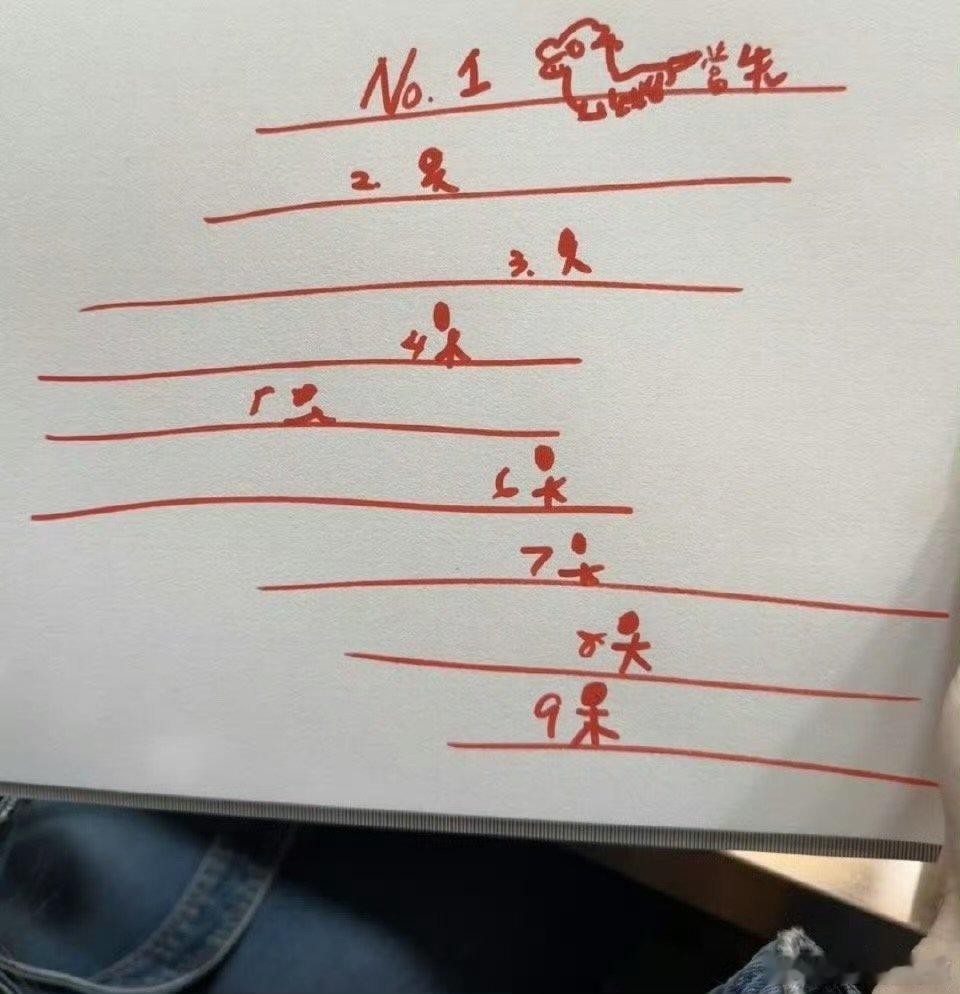 No. 1 當先
2.
3.
4
5
6
7
8
9